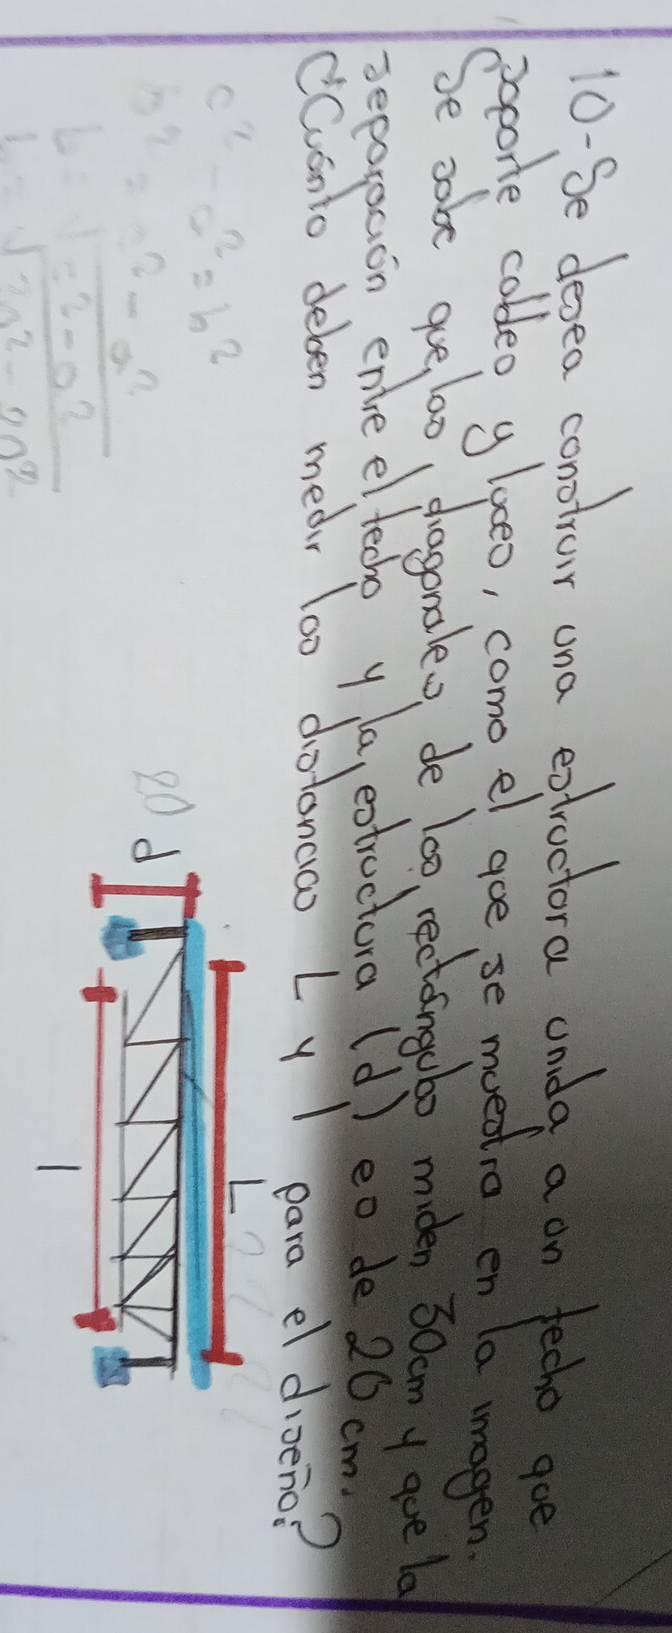 10-Se desea construir una estructura unida a un techo que
soporte cables y luces, como el que se muestra en la imagen.
Se sabe que, las diagonales de los rectángulos miden 30cm y que la
separación entre el techo y la estructura (d) es de 26 cm.
¿Cuánto deben medir las distancias L y l para el diseño?
c² - a² = b²
b² = c² - a²
b = √c² - a²
d
L
l